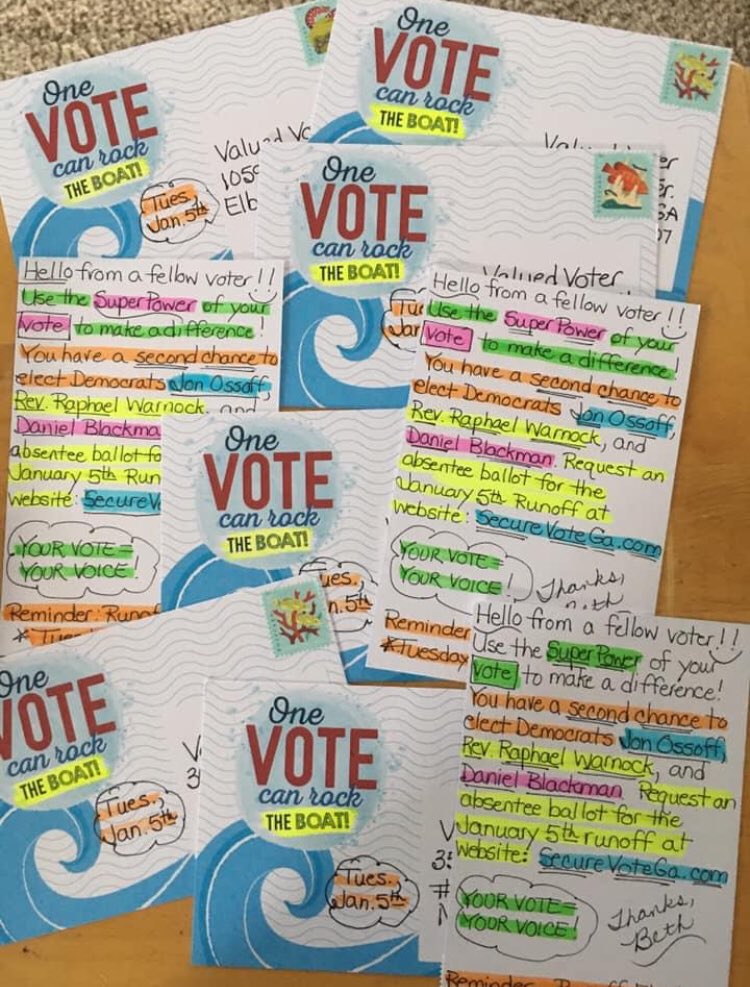 One
VOTE
can rock
THE BOAT!
Tues.
Jan. 5th
1059
One
VOTE
can rock
THE BOAT!
One
VOTE
can rock
THE BOAT!
Valued Voter
Hello from a fellow voter!!
Use the SuperPower of your
vote to make a difference!
You have a second chance to
elect Democrats Jon Ossoff,
Rev. Raphael Warnock, and
Daniel Blackma
absentee ballot fo
January 5th Run
website: SecureV
YOUR VOTE =
YOUR VOICE!
Reminder: Runof
*Tues
Hello from a fellow voter!!
Use the SuperPower of your
vote to make a difference!
You have a second chance to
elect Democrats Jon Ossoff,
Rev. Raphael Warnock, and
Daniel Blackman. Request an
absentee ballot for the
January 5th Runoff at
website: SecureVoteGa.com
YOUR VOTE =
YOUR VOICE!
Thanks,
Reminder
*Tuesday
One
VOTE
can rock
THE BOAT!
One
VOTE
can rock
THE BOAT!
Tues.,
Jan. 5th
One
VOTE
can rock
THE BOAT!
Tues.
Jan. 5th
Hello from a fellow voter!!
Use the SuperPower of your
vote to make a difference!
You have a second chance to
elect Democrats Jon Ossoff,
Rev. Raphael Warnock, and
Daniel Blackman. Request an
absentee ballot for the
January 5th runoff at
website: SecureVoteGa.com
YOUR VOTE =
YOUR VOICE!
Thanks,
Beth